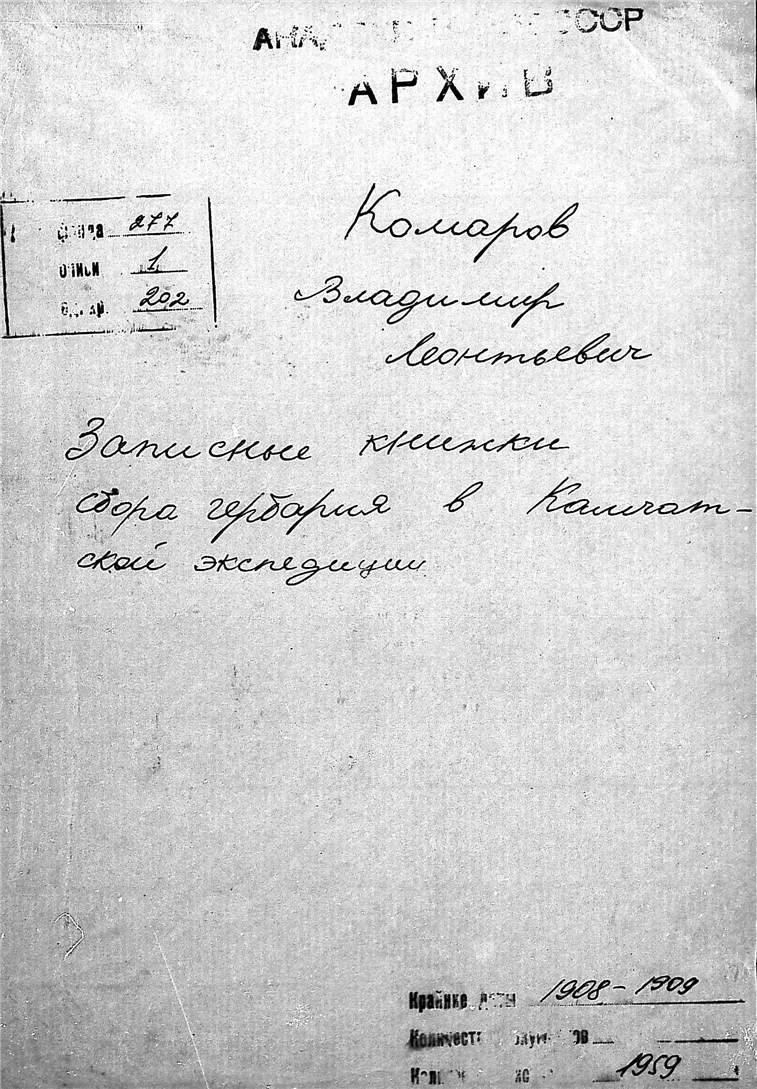 СССР
АРХИВ
фонда 277
описи 1
ед. хр. 202
Комаров
Владимир
Леонтьевич
Записные книжки
сбора гербария в Камчат-
ской экспедиции
Крайние даты 1908-1909
Количество документов
1959